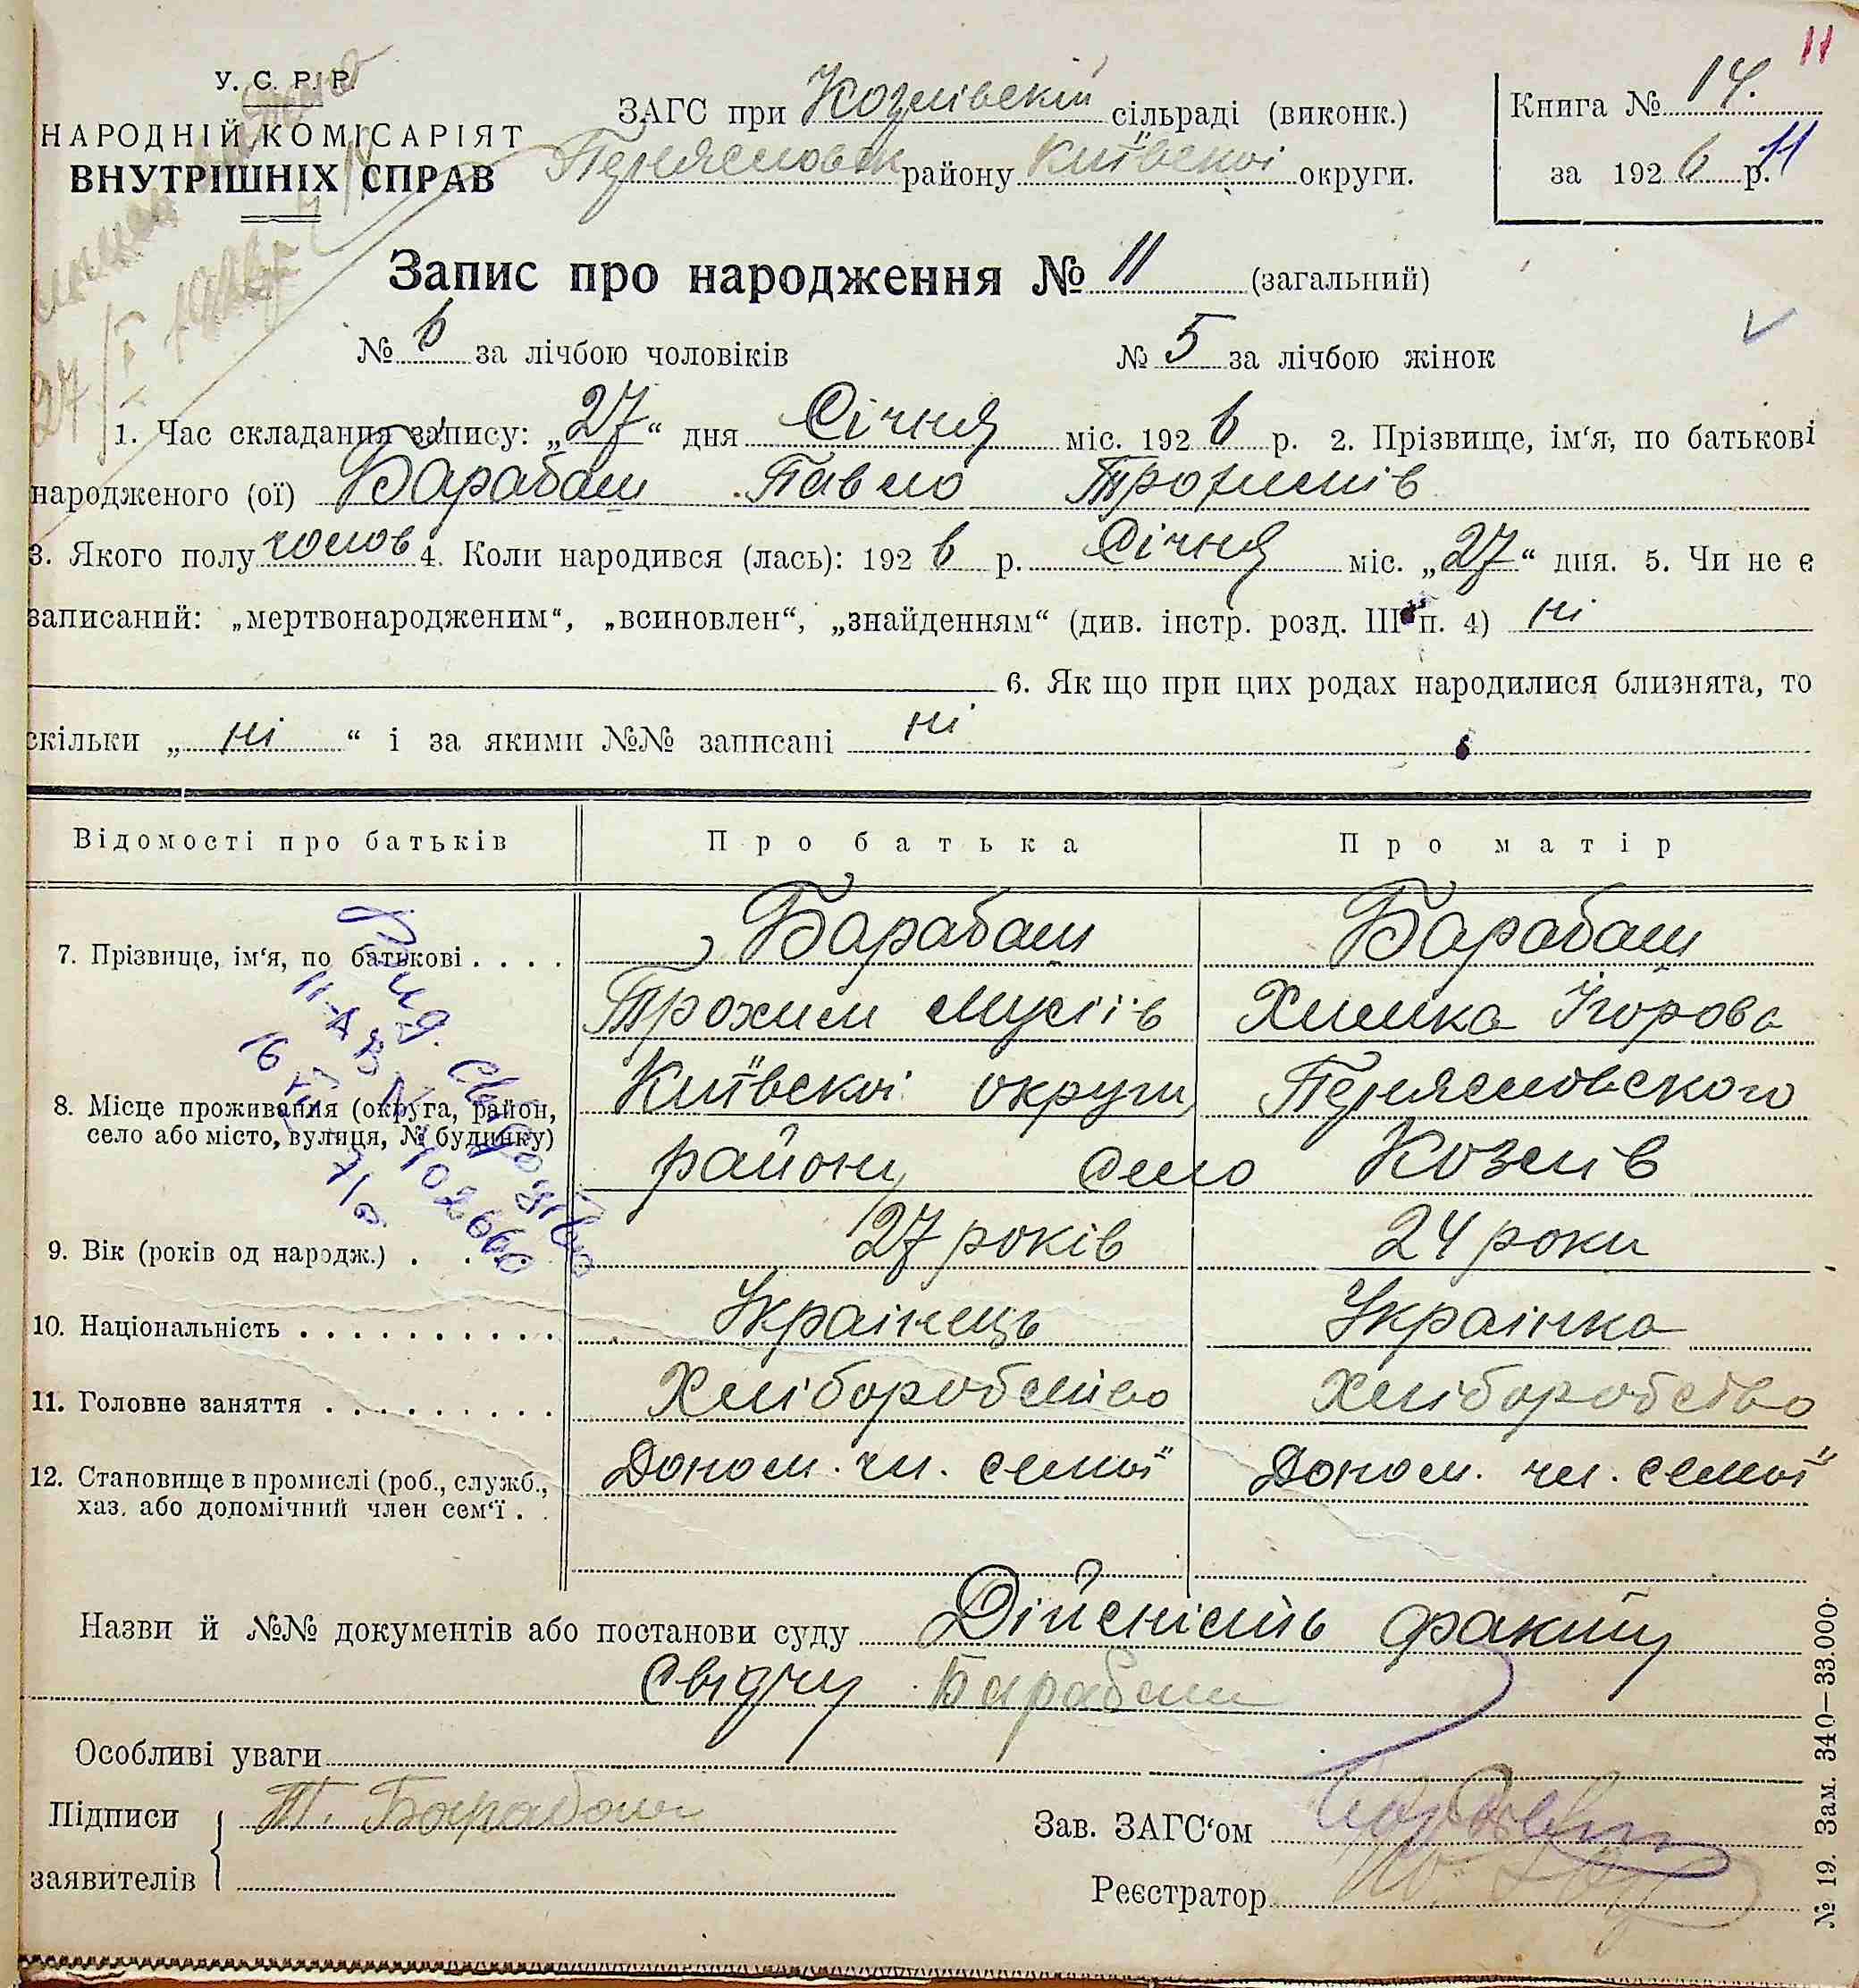 11
У. С. Р. Р.
НАРОДНІЙ КОМІСАРІЯТ
ВНУТРІШНІХ СПРАВ
ЗАГС при Козлівскій сільраді (виконк.)
Переясловск району Київскоі округи.
Книга № 14.
за 192 6 р. 11
Запис про народження № 11 (загальний)
№ 6 за лічбою чоловіків № 5 за лічбою жінок
27/I
1. Час складання запису: „27“ дня Січня міс. 192 6 р. 2. Прізвище, ім‘я, по батькові
народженого (ої) Барабаш Павло Трохимів
3. Якого полу чолов 4. Коли народився (лась): 192 6 р. Січня міс. „27“ дня. 5. Чи не є
записаний: „мертвонародженим“, „всиновлен“, „знайденням“ (див. інстр. розд. III п. 4) ні
6. Як що при цих родах народилися близнята, то
скільки „ ні “ і за якими №№ записані ні
Відомості про батьків Про батька Про матір
7. Прізвище, ім‘я, по батькові . . . . Барабаш Барабаш
Трохим Мусіїв Химка Ігорова
8. Місце проживання (округа, район, село або місто, вулиця, № будинку) Київскоі округи Переясловского
району село Козлів
9. Вік (років од народж.) . . 27 років 24 роки
10. Національність . . . . . . . . . . . Украінець Украінка
11. Головне заняття . . . . . . . . . . Хліборобство Хліборобство
12. Становище в промислі (роб., служб., хаз. або допомічний член сем‘ї . . Допом. чл. семьї Допом. чл. семьї
Назви й №№ документів або постанови суду Дійсність факту
свідчу Барабаш
Особливі уваги
Підписи
заявителів
Т. Барабаш
Зав. ЗАГС‘ом
Реєстратор
№ 19. Зам. 340—33.000.